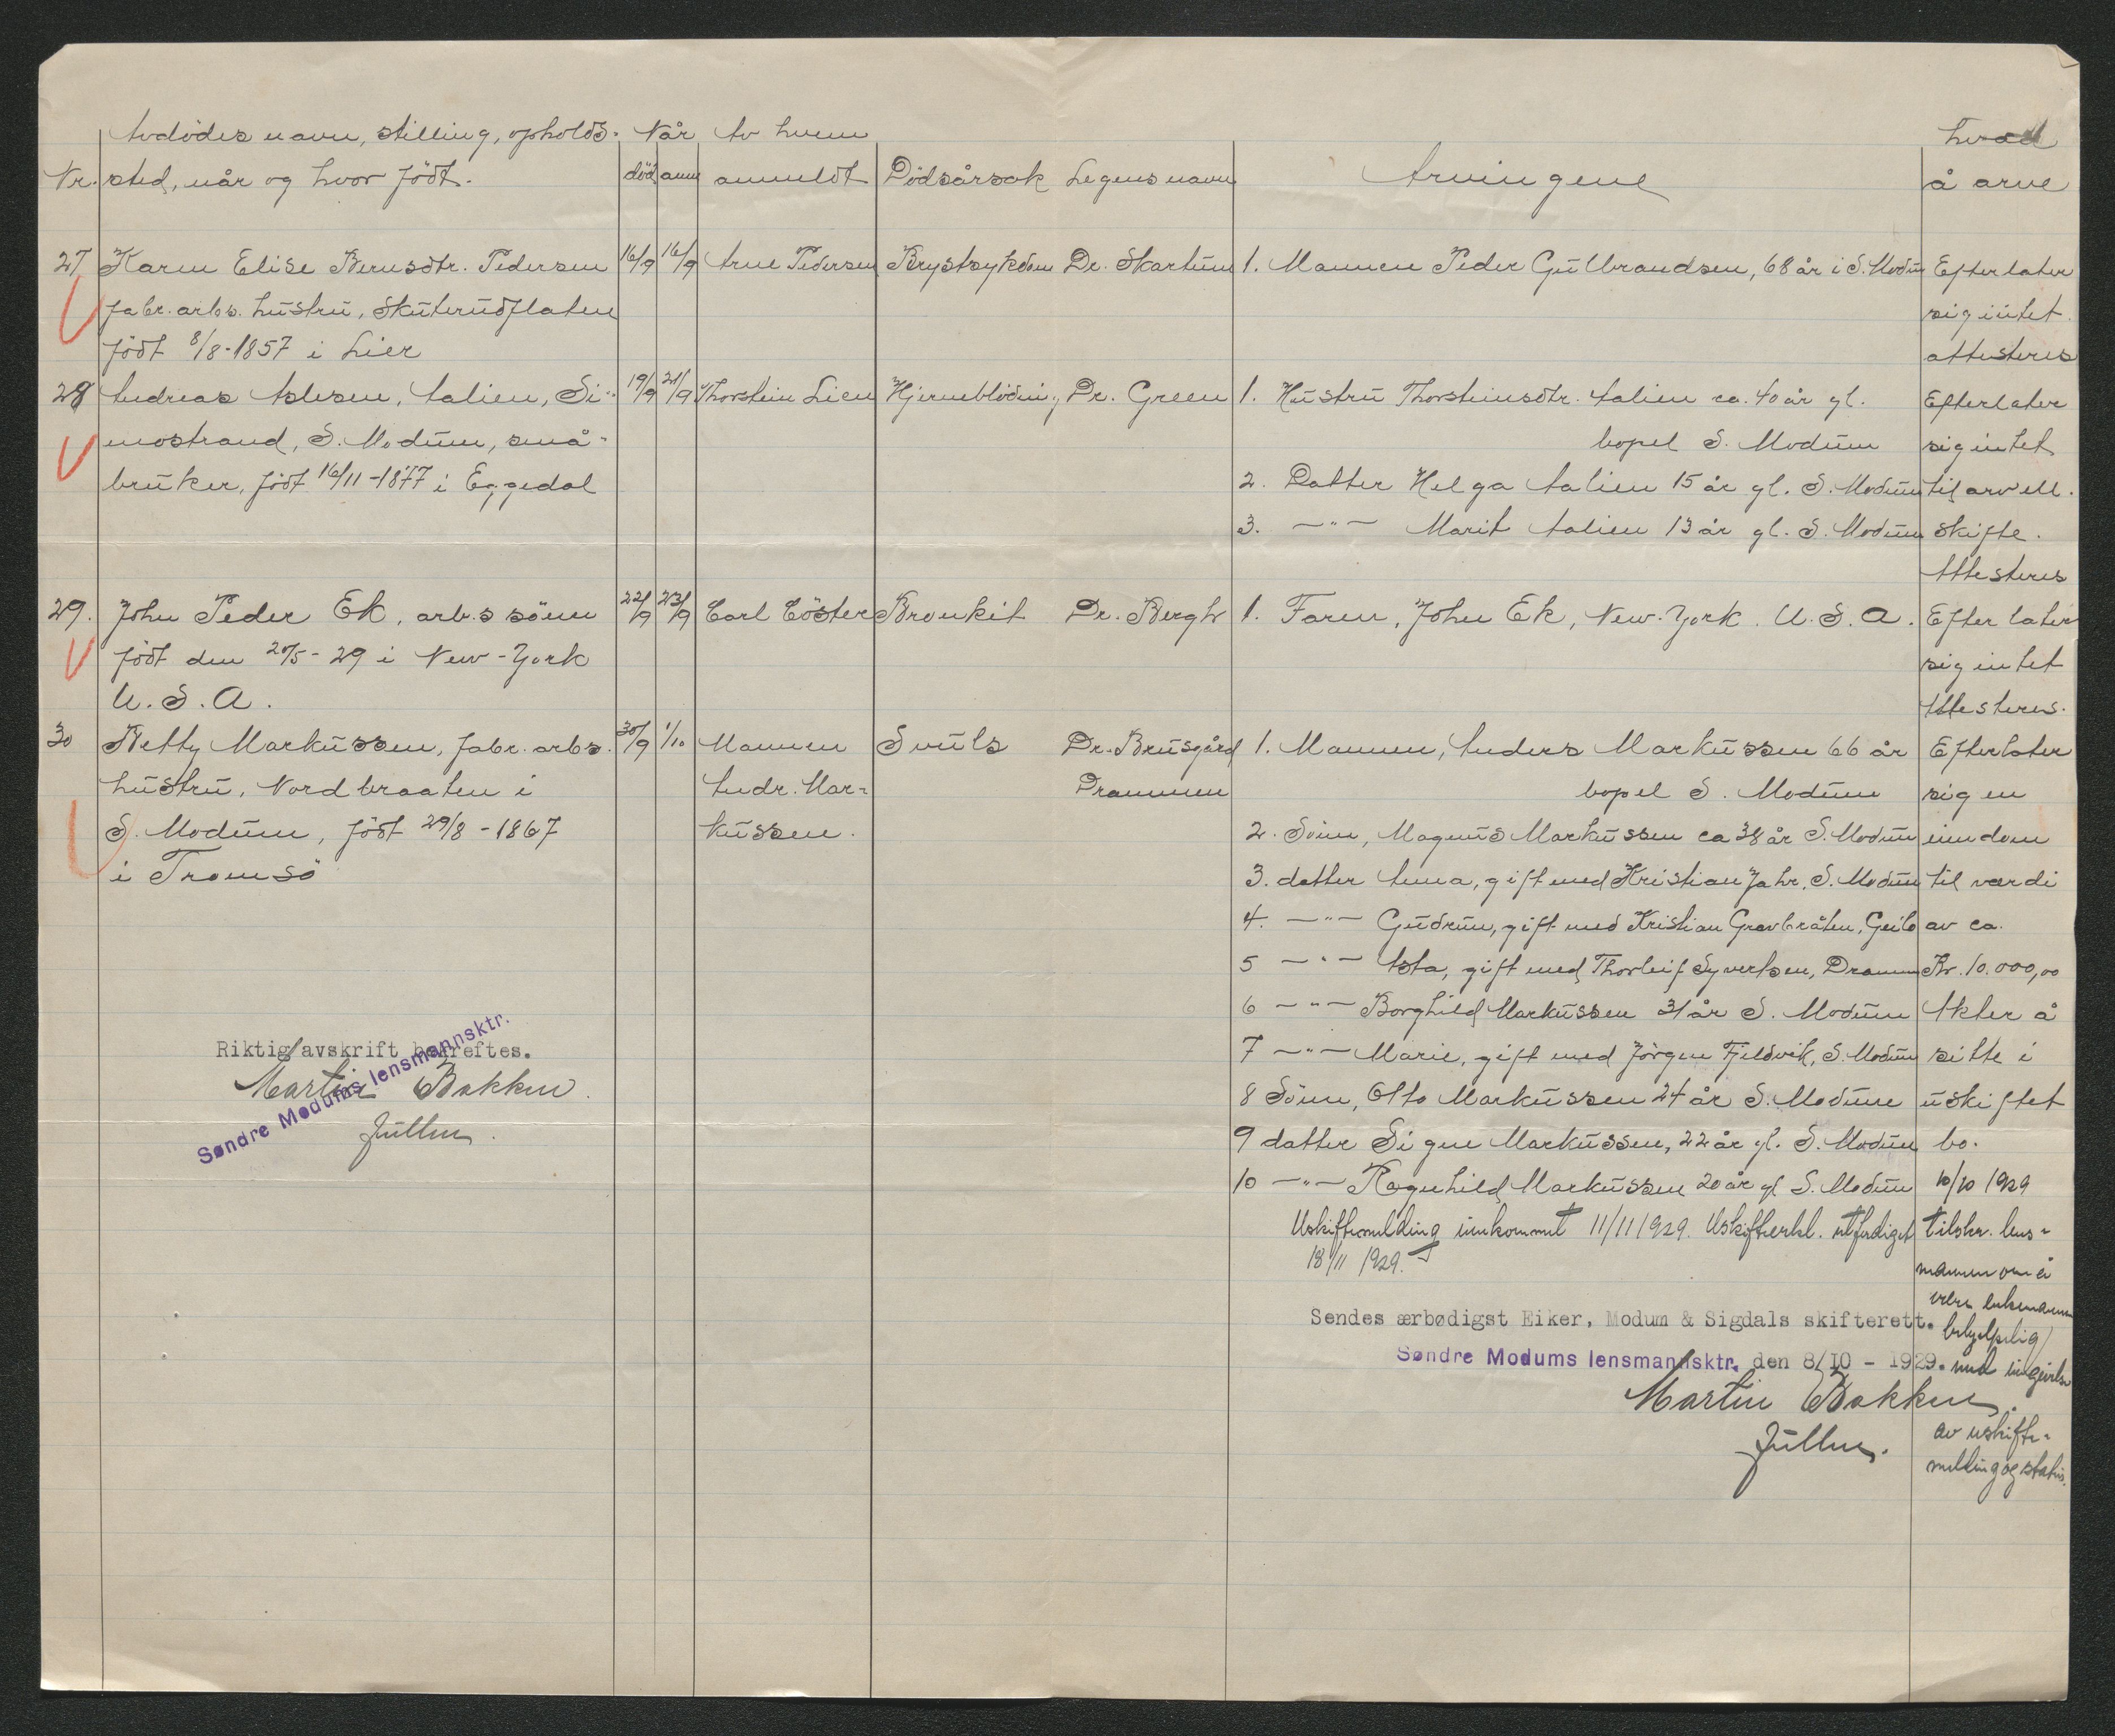 Avdödes navn, stilling, opholds- Når Av hvem Hvad
Nr. sted, når og hvor födt. död anm anmeldt Dödsårsak Legens navn Arvingene å arve
27 Karen Elise Berusdtr. Pedersen 16/9 16/9 Arne Pedersen Brystsykdom Dr. Skartum 1. Mannen Peder Gulbrandsen, 68 år i S. Modum Efterlater
fabr. arbs. hustru, Skuterudflaten sig intet.
födt 8/8-1857 i Lier attesteres
28 Andreas Aslesen, Aalien, Si- 19/9 21/9 Thorstein Lien Hjerneblödning Dr. Green 1. Hustru Thorsteinsdtr. Aalien ca. 40 år gl. Efterlater
monstrand, S. Modum, små- bopel S. Modum sig intet
bruker, födt 16/11-1877 i Eggedal 2. Datter Helga Aalien 15 år gl. S. Modum til arv ell.
3. —"— Marit Aalien 13 år gl. S. Modum skifte.
Attesteres
29. John Peder Ek, arb.s sönn 22/9 23/9 Carl Cöster Bronkit Dr. Bergh 1. Faren, John Ek, New-York. U.S.A. Efterlater
födt den 20/5-29 i New-York sig intet
U.S.A. Attesteres.
30 Betty Markussen, fabr. arbs. 30/9 1/10 Mannen Svuls Dr. Brusgård 1. Mannen, Anders Markussen 66 år Efterlater
hustru, Nordbraaten i Andr. Mar- Drammen bopel S. Modum sig en
S. Modum, födt 29/8-1867 kussen. 2. Sönn, Magnus Markussen ca 38 år S. Modum eiendom
i Tromsö 3. datter Anna, gift med Kristian Jahr, S. Modum til værdi
4. —"— Gudrun, gift med Kristian Gravbråten, Geilo av ca.
5 —"— Asta, gift med Thorleif Syvertsen, Drammen Kr. 10.000,00
6 —"— Borghild Markussen 31 år S. Modum Akter å
7 —"— Marie, gift med Jörgen Fjeldvik, S. Modum sitte i
8 Sönn, Otto Markussen 24 år S. Modum uskiftet
9 datter Signe Markussen, 22 år gl. S. Modum bo.
10 —"— Ragnhild Markussen 20 år gl S. Modum 10/10 1929
Uskiftemelding innkommet 11/11 1929. Uskifteerkl. utferdiget tilskr. lens-
18/11 1929. mannen om å
være enkemannen
behjelpelig
med inngivelse
av uskifte-
melding og status.
Riktig avskrift bekreftes.
Martin Bakken.
Fullm.
Søndre Modums lensmannsktr.
Sendes ærbødigst Eiker, Modum & Sigdals skifterett.
Søndre Modums lensmannsktr. den 8/10 - 1929.
Martin Bakken.
Fullm.